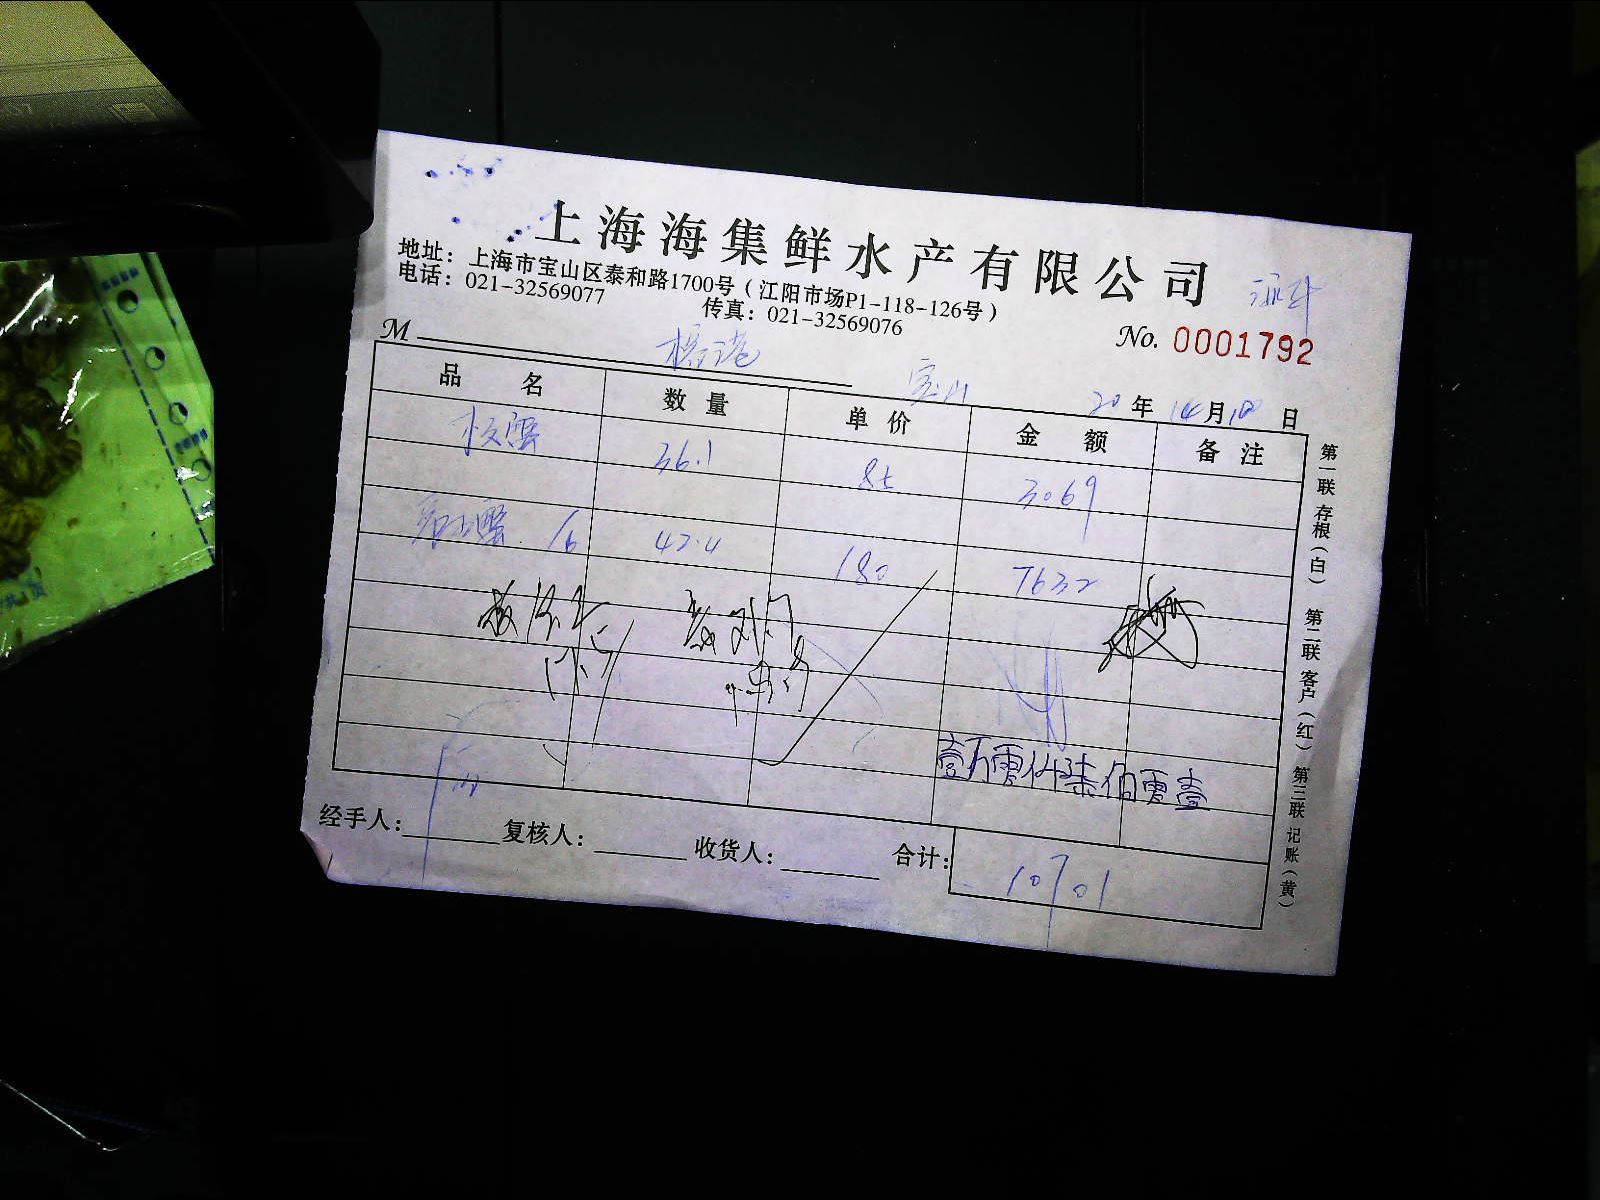 上海海集鲜水产有限公司
地址：上海市宝山区泰和路1700号（江阳市场P1-118-126号）
电话：021-32569077 传真：021-32569076
No. 0001792
M
宝山 20 年 月 日
品名 数量 单价 金额 备注
36.1 85 3069
蟹 16 42.4 180 7632
壹万零仟柒佰零壹
经手人： 复核人： 收货人： 合计： 10701
第一联 存根（白） 第二联 客户（红） 第三联 记账（黄）